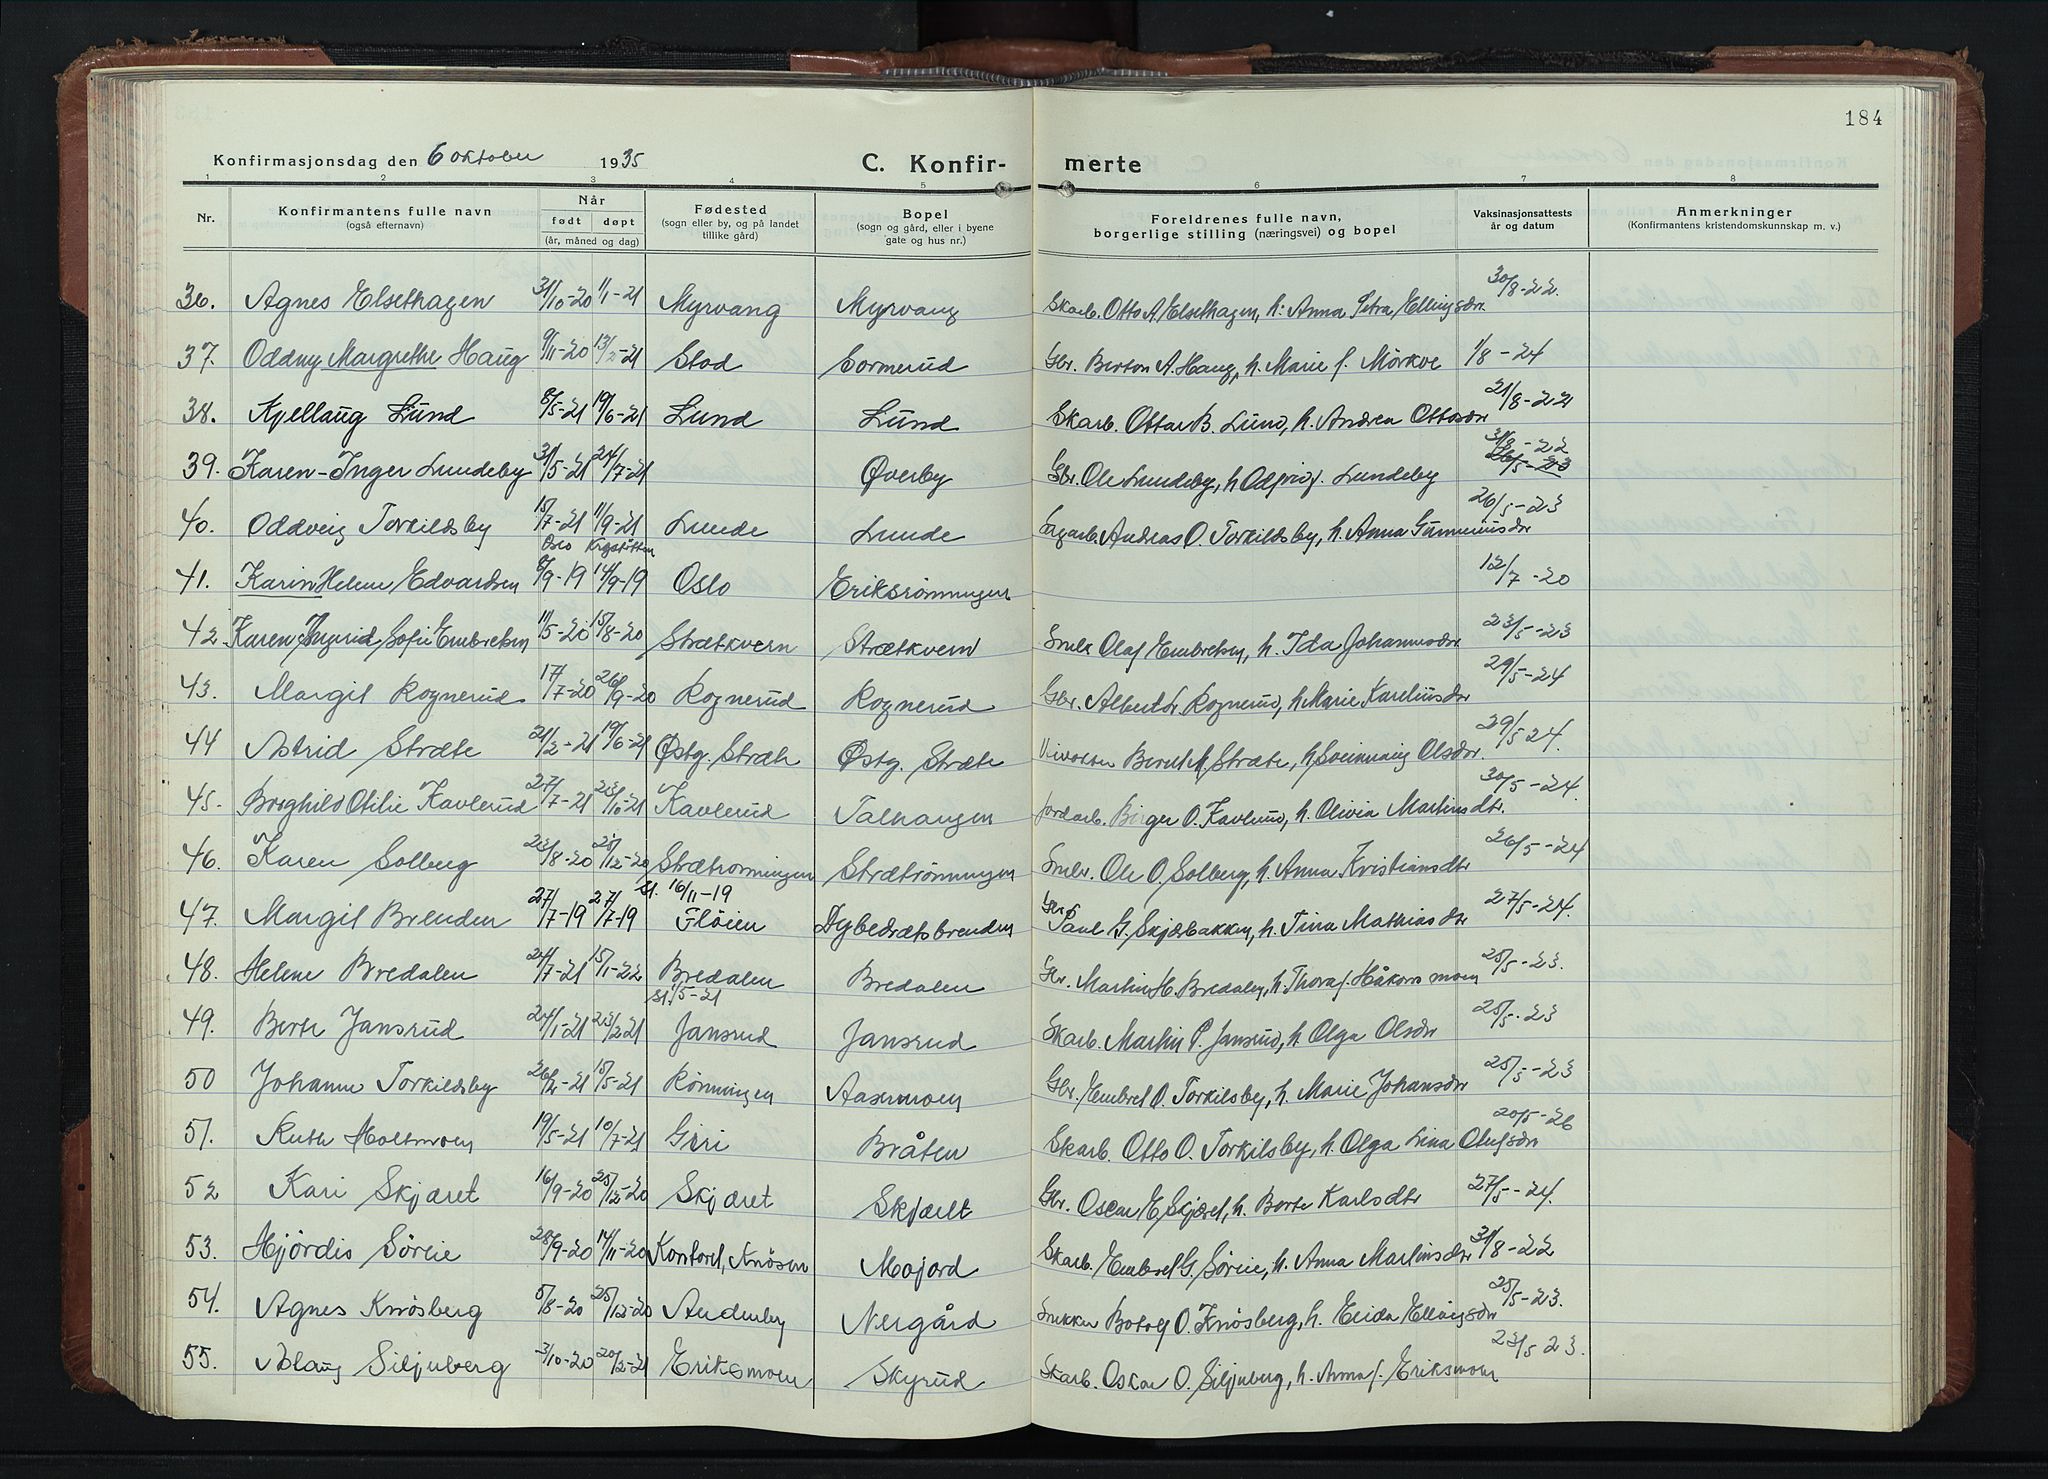 184
Konfirmasjonsdag den 6 oktober 1935 C. Konfir- merte
1 2 3 4 5 6 7 8
Nr. Konfirmantens fulle navn (også efternavn) Når født døpt (år, måned og dag) Fødested (sogn eller by, og på landet tillike gård) Bopel (sogn og gård, eller i byene gate og hus nr.) Foreldrenes fulle navn, borgerlige stilling (næringsvei) og bopel Vaksinasjonsattests år og datum Anmerkninger (Konfirmantens kristendomskunnskap m. v.)
36. Agnes Elsethagen 31/10-20 1/1-21 Myrvang Myrvang Skarb. Otto A. Elsethagen, h. Anna Petra Ellingsdtr 30/8-22.
37. Oddny Margrethe Haug 9/11-20 13/2-21 Stod Gormerud Gbr. Berton A. Haug, h. Marie f. Mörkve 1/8-24
38. Kjellaug Lund 8/5-21 19/6-21 Lund Lund Skarb. Ottar B. Lund, h. Andrea Ottosdtr 21/8-22
39. Karen-Inger Lundeby 31/5-21 24/7-21 Øverby Gbr. Ole Lundeby, h. f. Lundeby 31/8-22 26/5-23
40. Oddveig Torkildsby 15/7-21 11/9-21 Lunde Lunde Andreas O. Torkildsby, h. Anna Gunneriusdtr 26/5-23
Oslo
41. Karin Helene Edvardsen 8/9-19 14/9-19 Oslo Eriksrönningen 12/7-20
42. Karen Ingrid Sofie Embretsen 11/5-20 15/8-20 Strætkvern Strætkvern Smbr Olaf Embretsen, h. Ida Johannesdtr 23/5-23
43. Margit Rognerud 17/7-20 26/9-20 Rognerud Rognerud Gbr. Albert Rognerud, h. Marie Kareliusdtr 29/5-24
44 Astrid Stræte 21/2-21 19/6-21 Østg. Stræte Østg. Stræte Bernt M. Stræte, h. Sveinaug Olsdtr. 29/5 24.
45. Borghild Otilie Kavlerud 27/7-21 23/10-21 Kavlerud Talhaugen Jordarb. Birger O. Kavlerud, h. Olivia Martinsdtr. 30/5-24.
46. Karen Solberg 23/8-20 25/12-20 Strætrönningen Strætrönningen Smbr. Ole O. Solberg, h. Anna Kristiansdtr 26/5-24
st. 16/11-19
47. Margit Brenden 27/7-19 27/7-19 Flöien Dybedrætsbrenden Gbr. Paul G. Skjærbakken, h. Tina Mathiasdtr 27/5-24.
48. Helene Bredalen 24/7-21 15/1-22 Bredalen Bredalen Gbr. Martin H. Bredalen, h. Thora f. Håkonsmoen 25/5-23.
st. 1/5-21
49. Berte Jansrud 24/1-21 23/2-21 Jansrud Jansrud Skarb. Martin P. Jansrud, h. Olga Olsdtr 25/5-23
50 Johanne Torkildsby 26/2-21 15/5-21 Rönningen Aasermoen Gbr. Embret O. Torkilsby, h. Marie Johansdtr 25/5-23
51. Ruth Holtmoen 19/5-21 10/7-21 Giri Bråten Skarb. Otto O. Torkilsby, h. Olga Lina Olufsdtr 20/5-26
52 Kari Skjæret 16/9-20 25/12-20 Skjæret Skjæret Gbr. Oscar E. Skjæret, h. Berte Karlsdtr 27/5-24.
53. Hjördis Söreie 28/9-20 14/11-20 Kortoret, Knösen Mojord Skarb. Embret G. Söreie, h. Anna Martinsdtr 31/8-22
54. Agnes Knösberg 5/8-20 25/12-20 Anderby Nergård Snekker Botolf O. Knösberg, h. Elida Ellingsdtr 25/5-23.
55. Aslaug Siljuberg 3/10-20 20/2-21 Eriksmoen Skyrud Skarb. Oskar O. Siljuberg, h. Anna f. Eriksmoen 23/5 23.